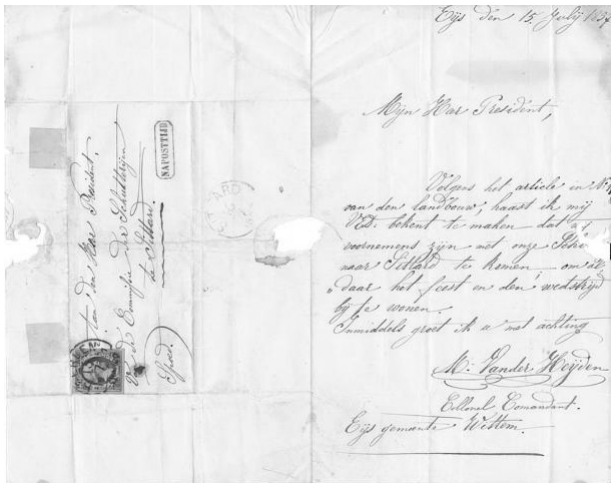 Eys den 15 July
Mijn Heer President,
Volgens het article in
van den landbouw, haast ik mij
VEd. bekent te maken dat
voornemens zijn met onze
naar Sittard te komen, om
daar het feest en den wedstrijd
bij te wonen.
Inmiddels groet ik u met achting
M. Vander Heijden
Collonel Comandant.
Eys gemante Wittem.
Aan den Heer President
Van de Commissie der Schutterijen
te Sittard.
Spoed.
NAPOSTTIJD